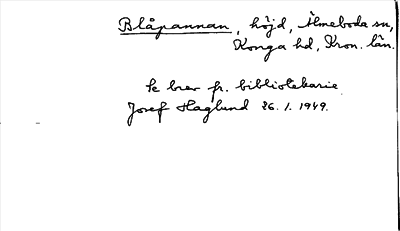 Blåpannan, höjd, Älmeboda sn,
Konga hd, Kron. län.
Se brev fr. bibliotekarie
Josef Haglund 26. 1. 1949.